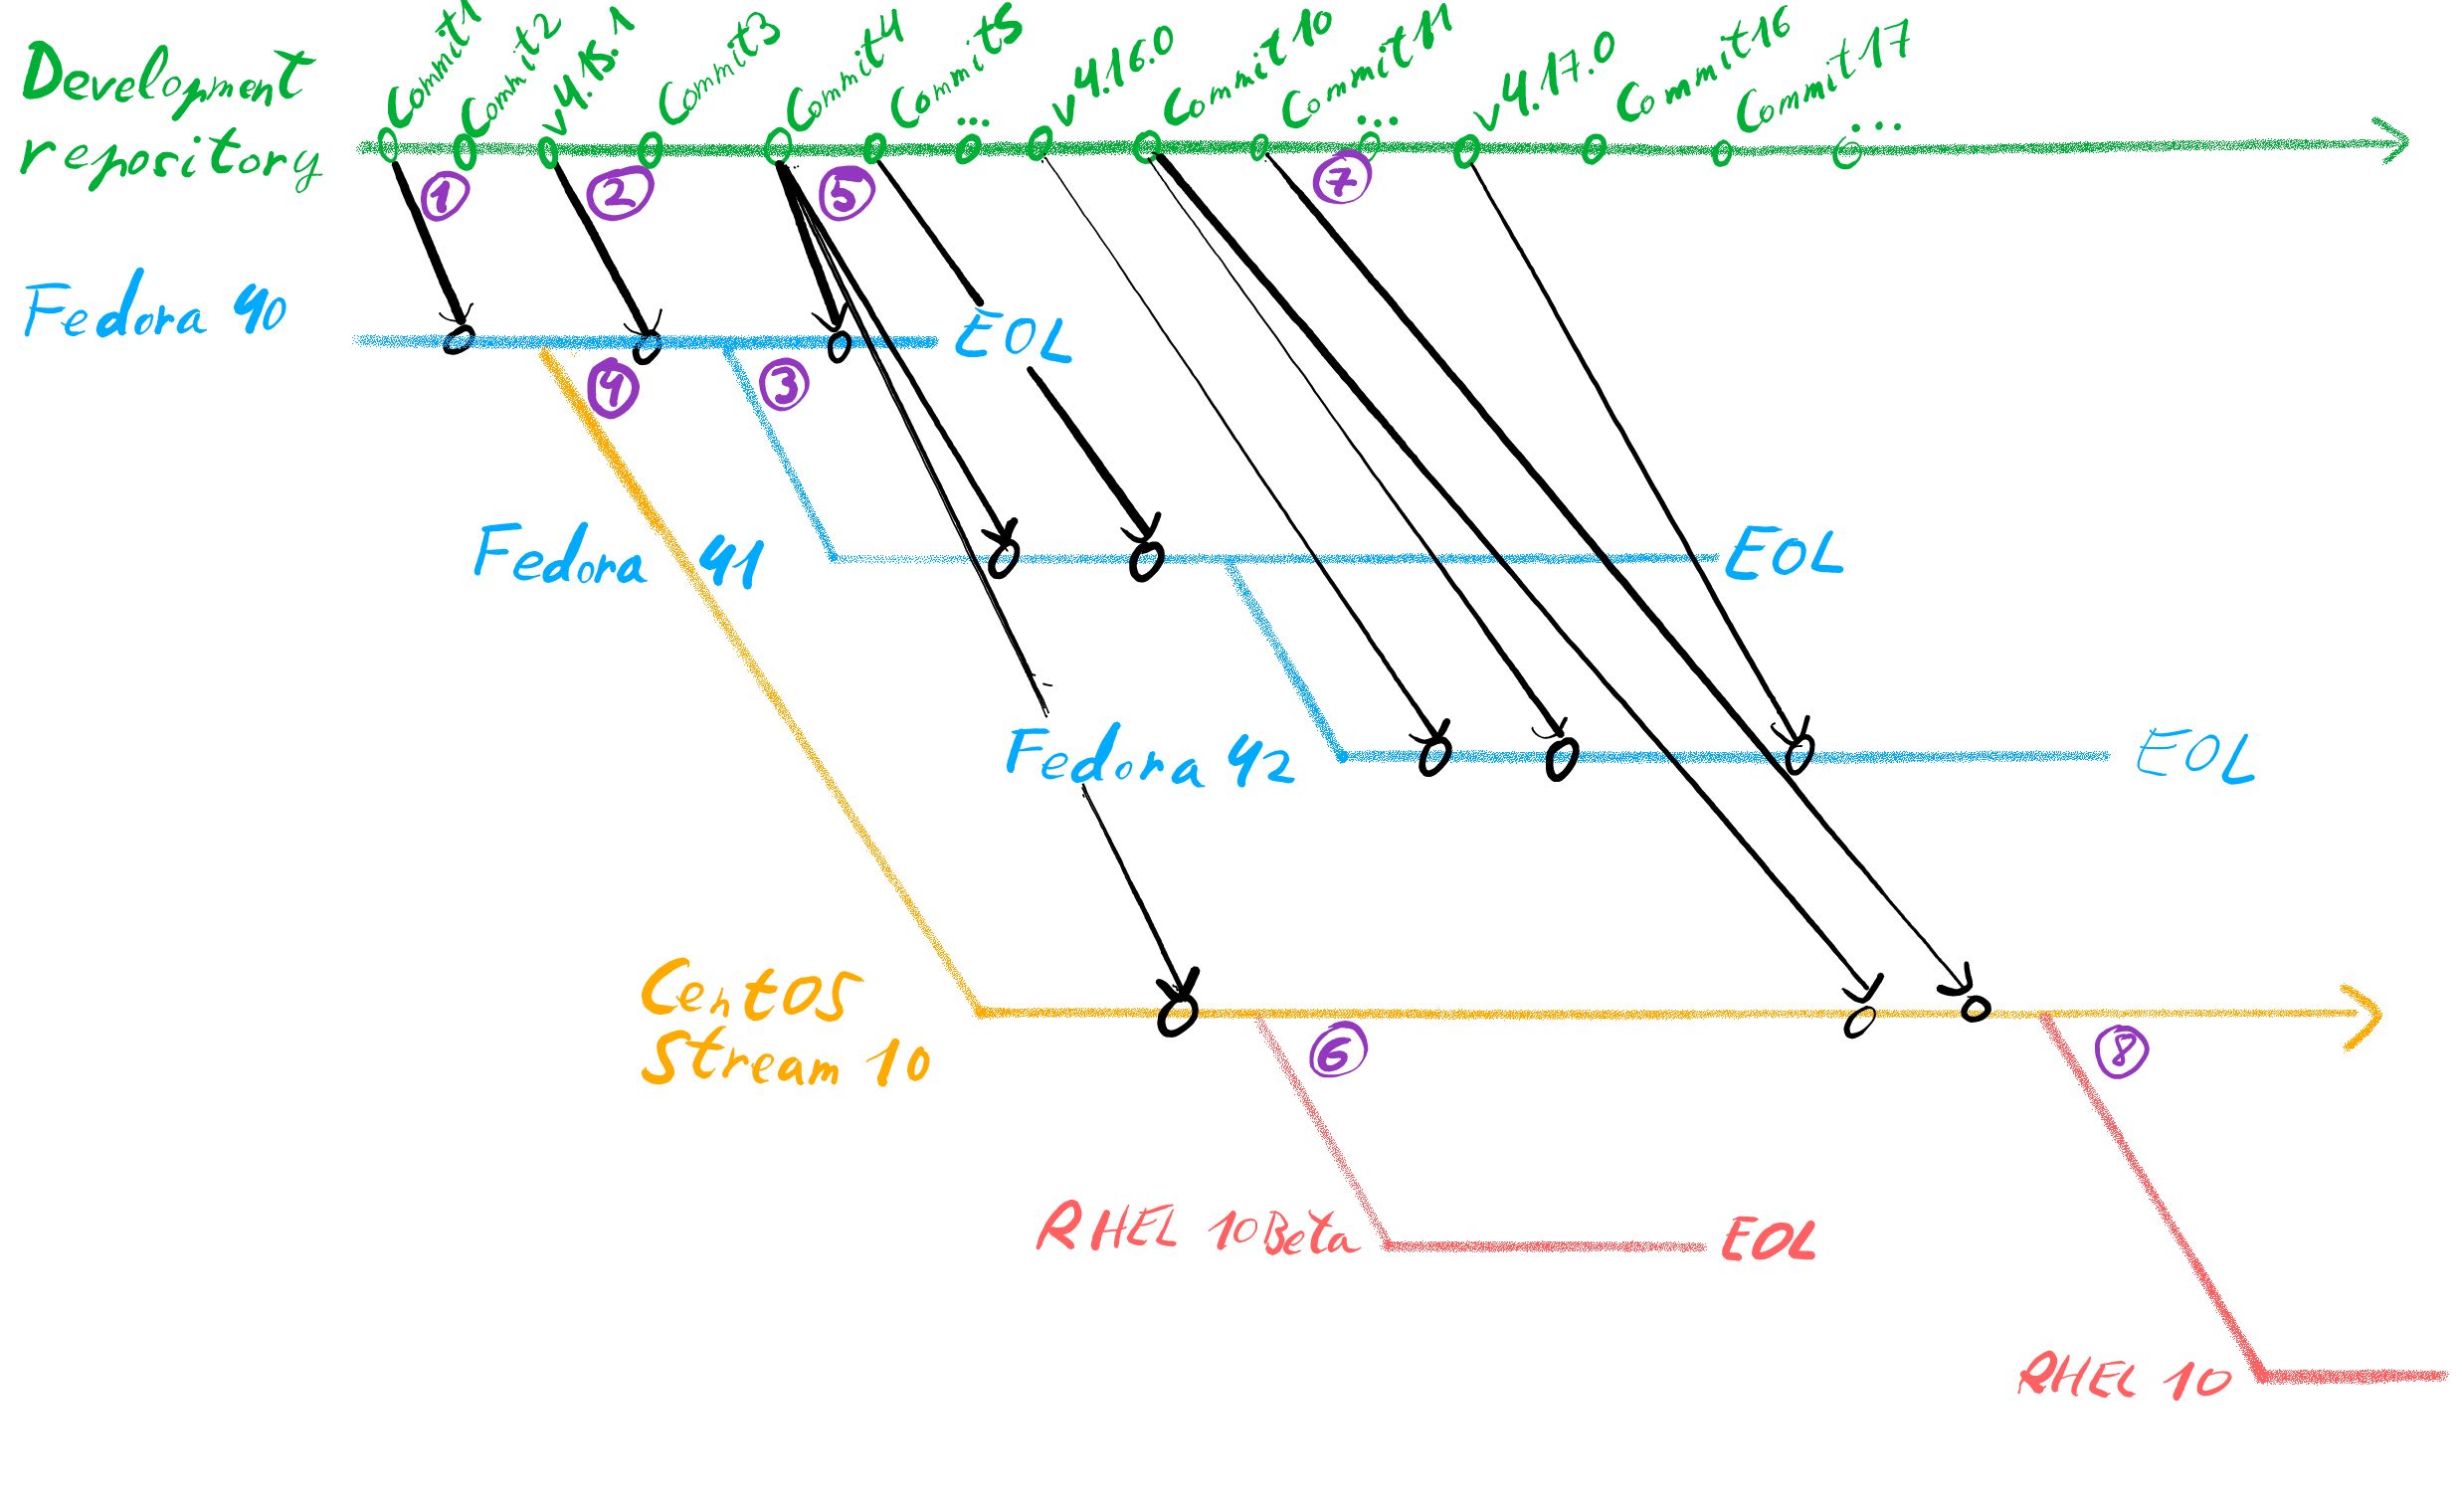 Development
repository
Commit1
Commit2
v4.15.1
Commit3
Commit4
Commit5
...
v4.16.0
Commit10
Commit11
...
v4.17.0
Commit16
Commit17
...
1
2
5
7
Fedora 40
EOL
4
3
Fedora 41
EOL
Fedora 42
EOL
CentOS
Stream 10
6
8
RHEL 10 Beta
EOL
RHEL 10